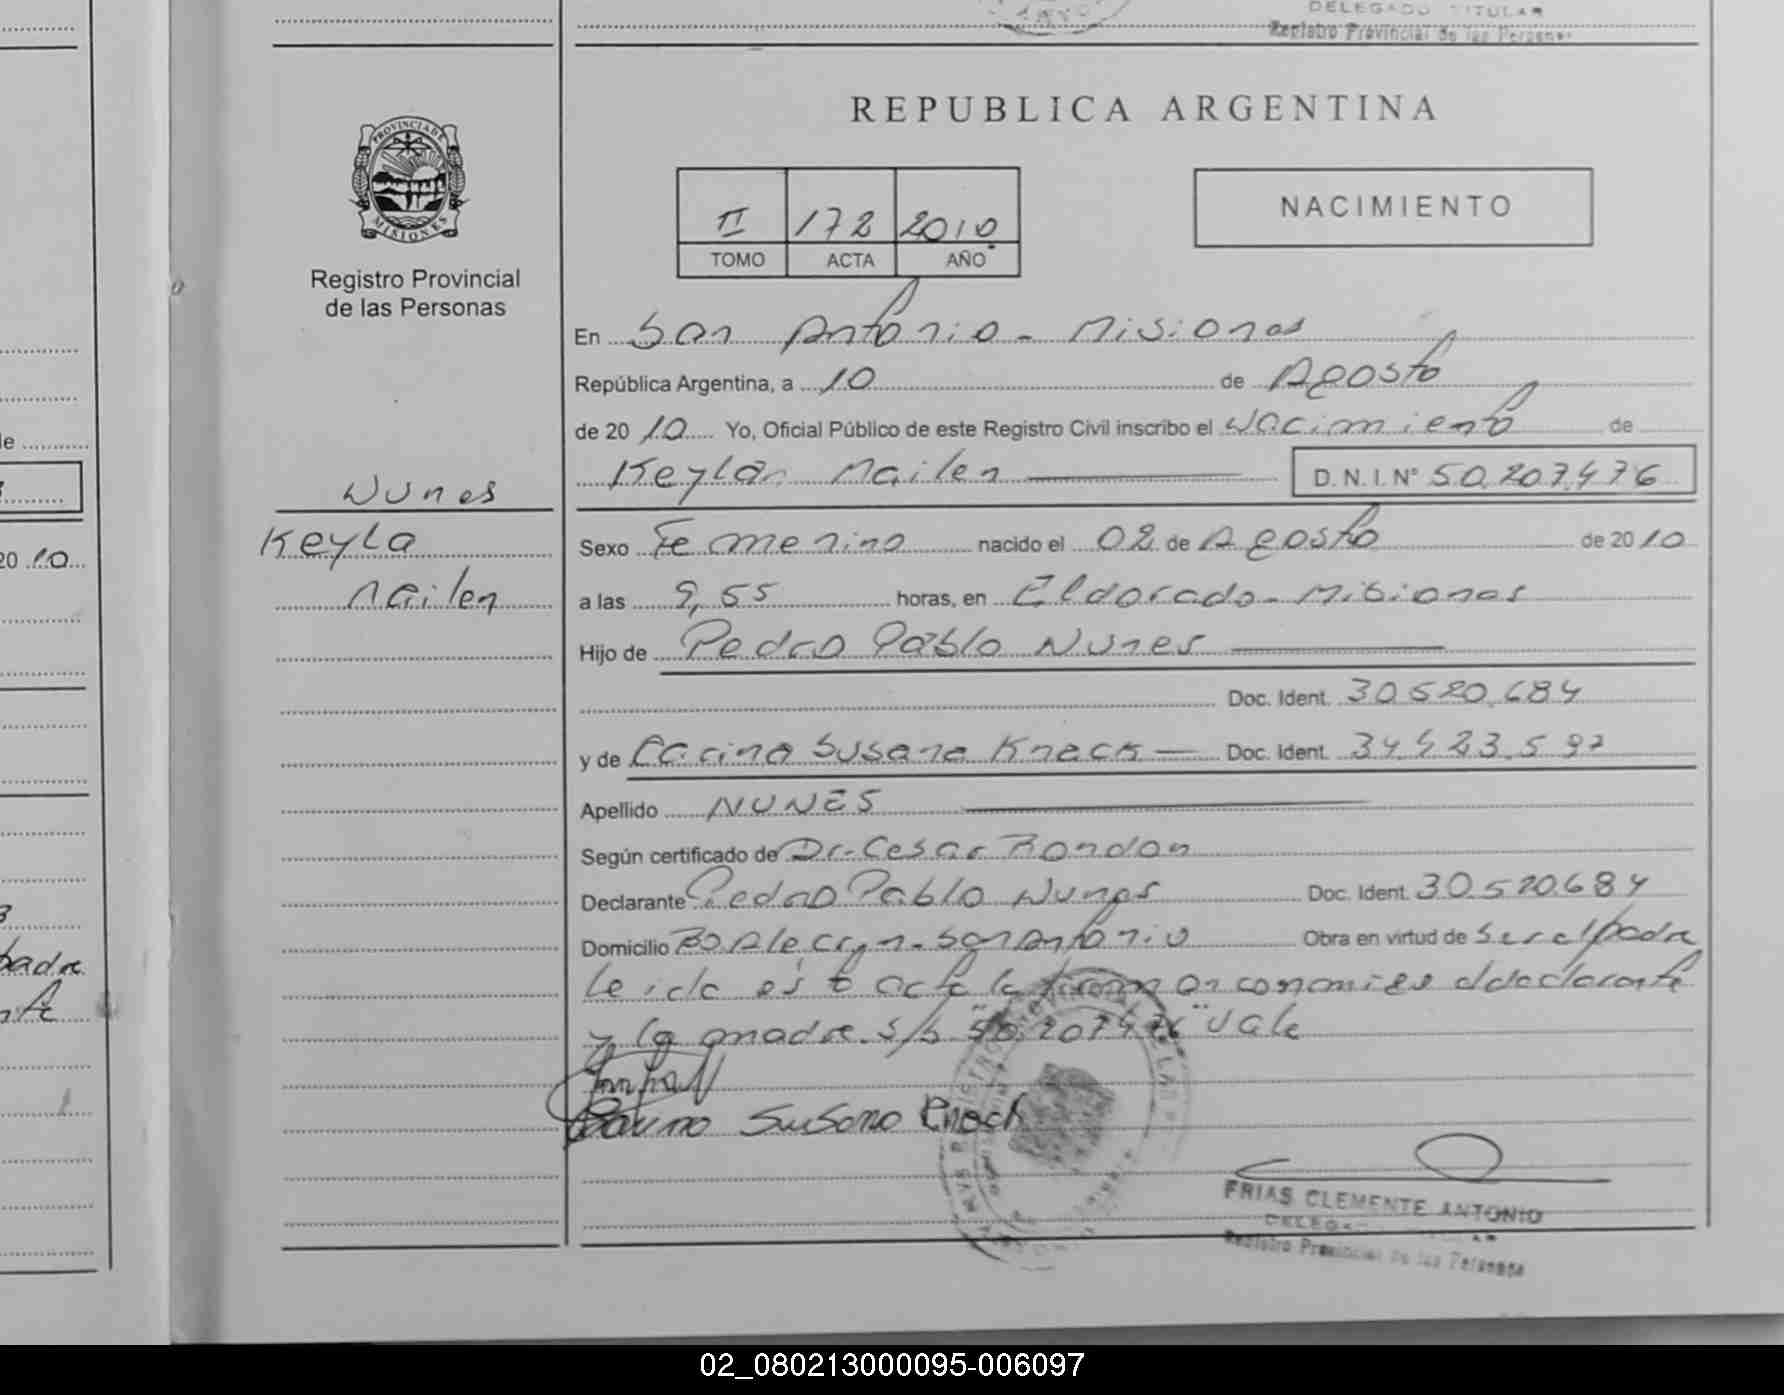 DELEGADO TITULAR
Registro Provincial de las Personas
REPUBLICA ARGENTINA
PROVINCIA DE
MISIONES
Registro Provincial
de las Personas
II 172 2010
TOMO ACTA AÑO
NACIMIENTO
En San Antonio - Misiones
República Argentina, a 10 de Agosto
de 20 10 Yo, Oficial Público de este Registro Civil inscribo el Nacimiento de
Keyla Mailen D.N.I.Nº 50.207.476
Nunes
Keyla
Mailen
Sexo Femenino nacido el 02 de Agosto de 20 10
a las 9,55 horas, en Eldorado - Misiones
Hijo de Pedro Pablo Nunes
Doc. Ident. 30.520.684
y de Carina Susana Knack Doc. Ident. 34.423.597
Apellido NUNES
Según certificado de Dr. Cesar Rondon
Declarante Pedro Pablo Nunes Doc. Ident. 30.520.684
Domicilio Bº Alecryn - San Antonio Obra en virtud de Ser el padre
leida esta acta la firman conmigo el declarante
y la madre. S/b "50.207.476" Vale
Carina Susana Knack
FRIAS CLEMENTE ANTONIO
DELEGADO TITULAR
Registro Provincial de las Personas
20 10
padre
02_080213000095-006097